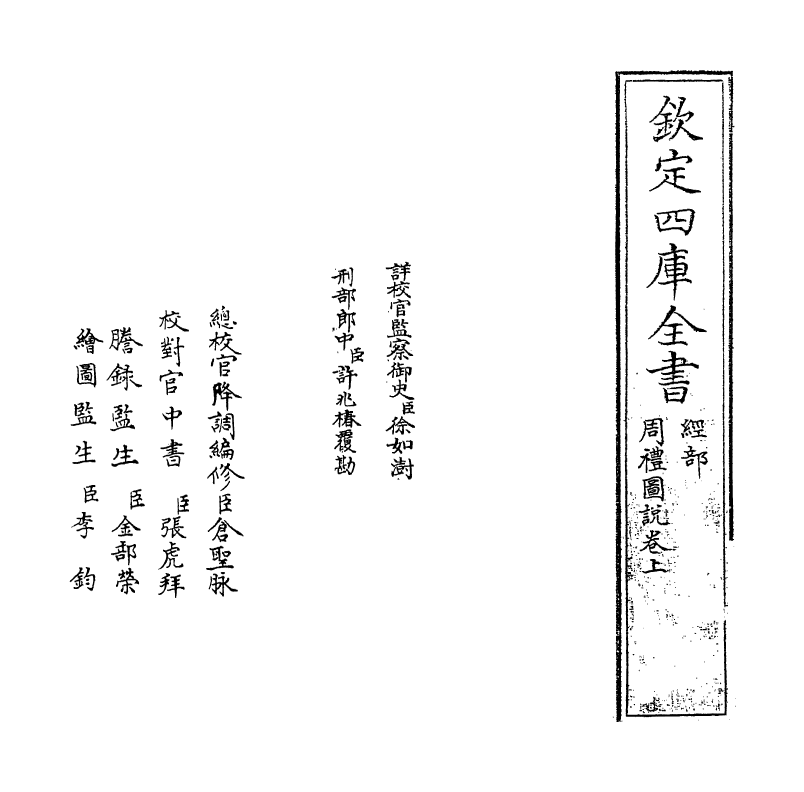 欽定四庫全書
經部
周禮圖說卷上
詳校官監察御史臣徐如澍
刑部郎中臣許兆椿覆勘
總校官降調編修臣倉聖脉
校對官中書臣張虎拜
謄録監生臣金部榮
繪圖監生臣李鈞